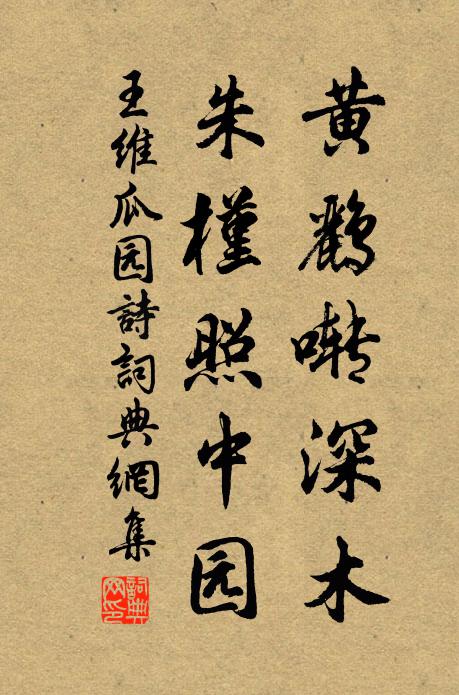 黄鹂啭深木
朱槿照中园
王維瓜园詩詞典網集
詞典网印